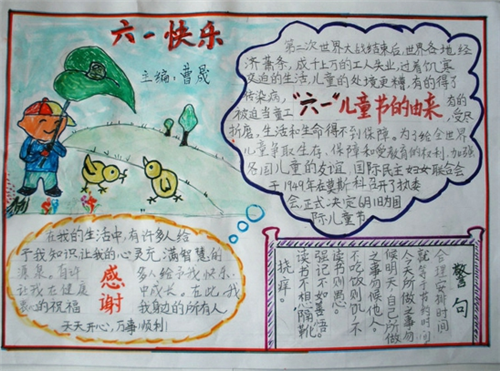 六一快乐
主编：曹晟
第二次世界大战结束后，世界各地，经
济萧条，成千上万的工人失业，过着饥寒
交迫的生活，儿童的处境更糟，有的得了
传染病，
"六一"儿童节的由来
有的
被迫当童工
受尽
折磨，生活和生命得不到保障。为了给全世界
儿童争取生存、保障和受教育的权利，加强
各国儿童的友谊，国际民主妇女联合会
于1949年在莫斯科召开了执委
会，正式决定
日为国
际儿童节
在我的生活中，有许多人给
予我知识，让我的心灵充满智慧的
源泉。有许
多人给予我快乐，
让我在健康
中成长。在此，我
衷心的祝福
我身边的所有人
天天开心，万事顺利！
感谢
警句
合理安排时间
就等于节约时间
今天所做之事勿
候明天，自己所做
之事勿候他人。
不吃饭则饥，不
读书则愚。
强记不如善悟。
读书不想，隔靴
挠痒。